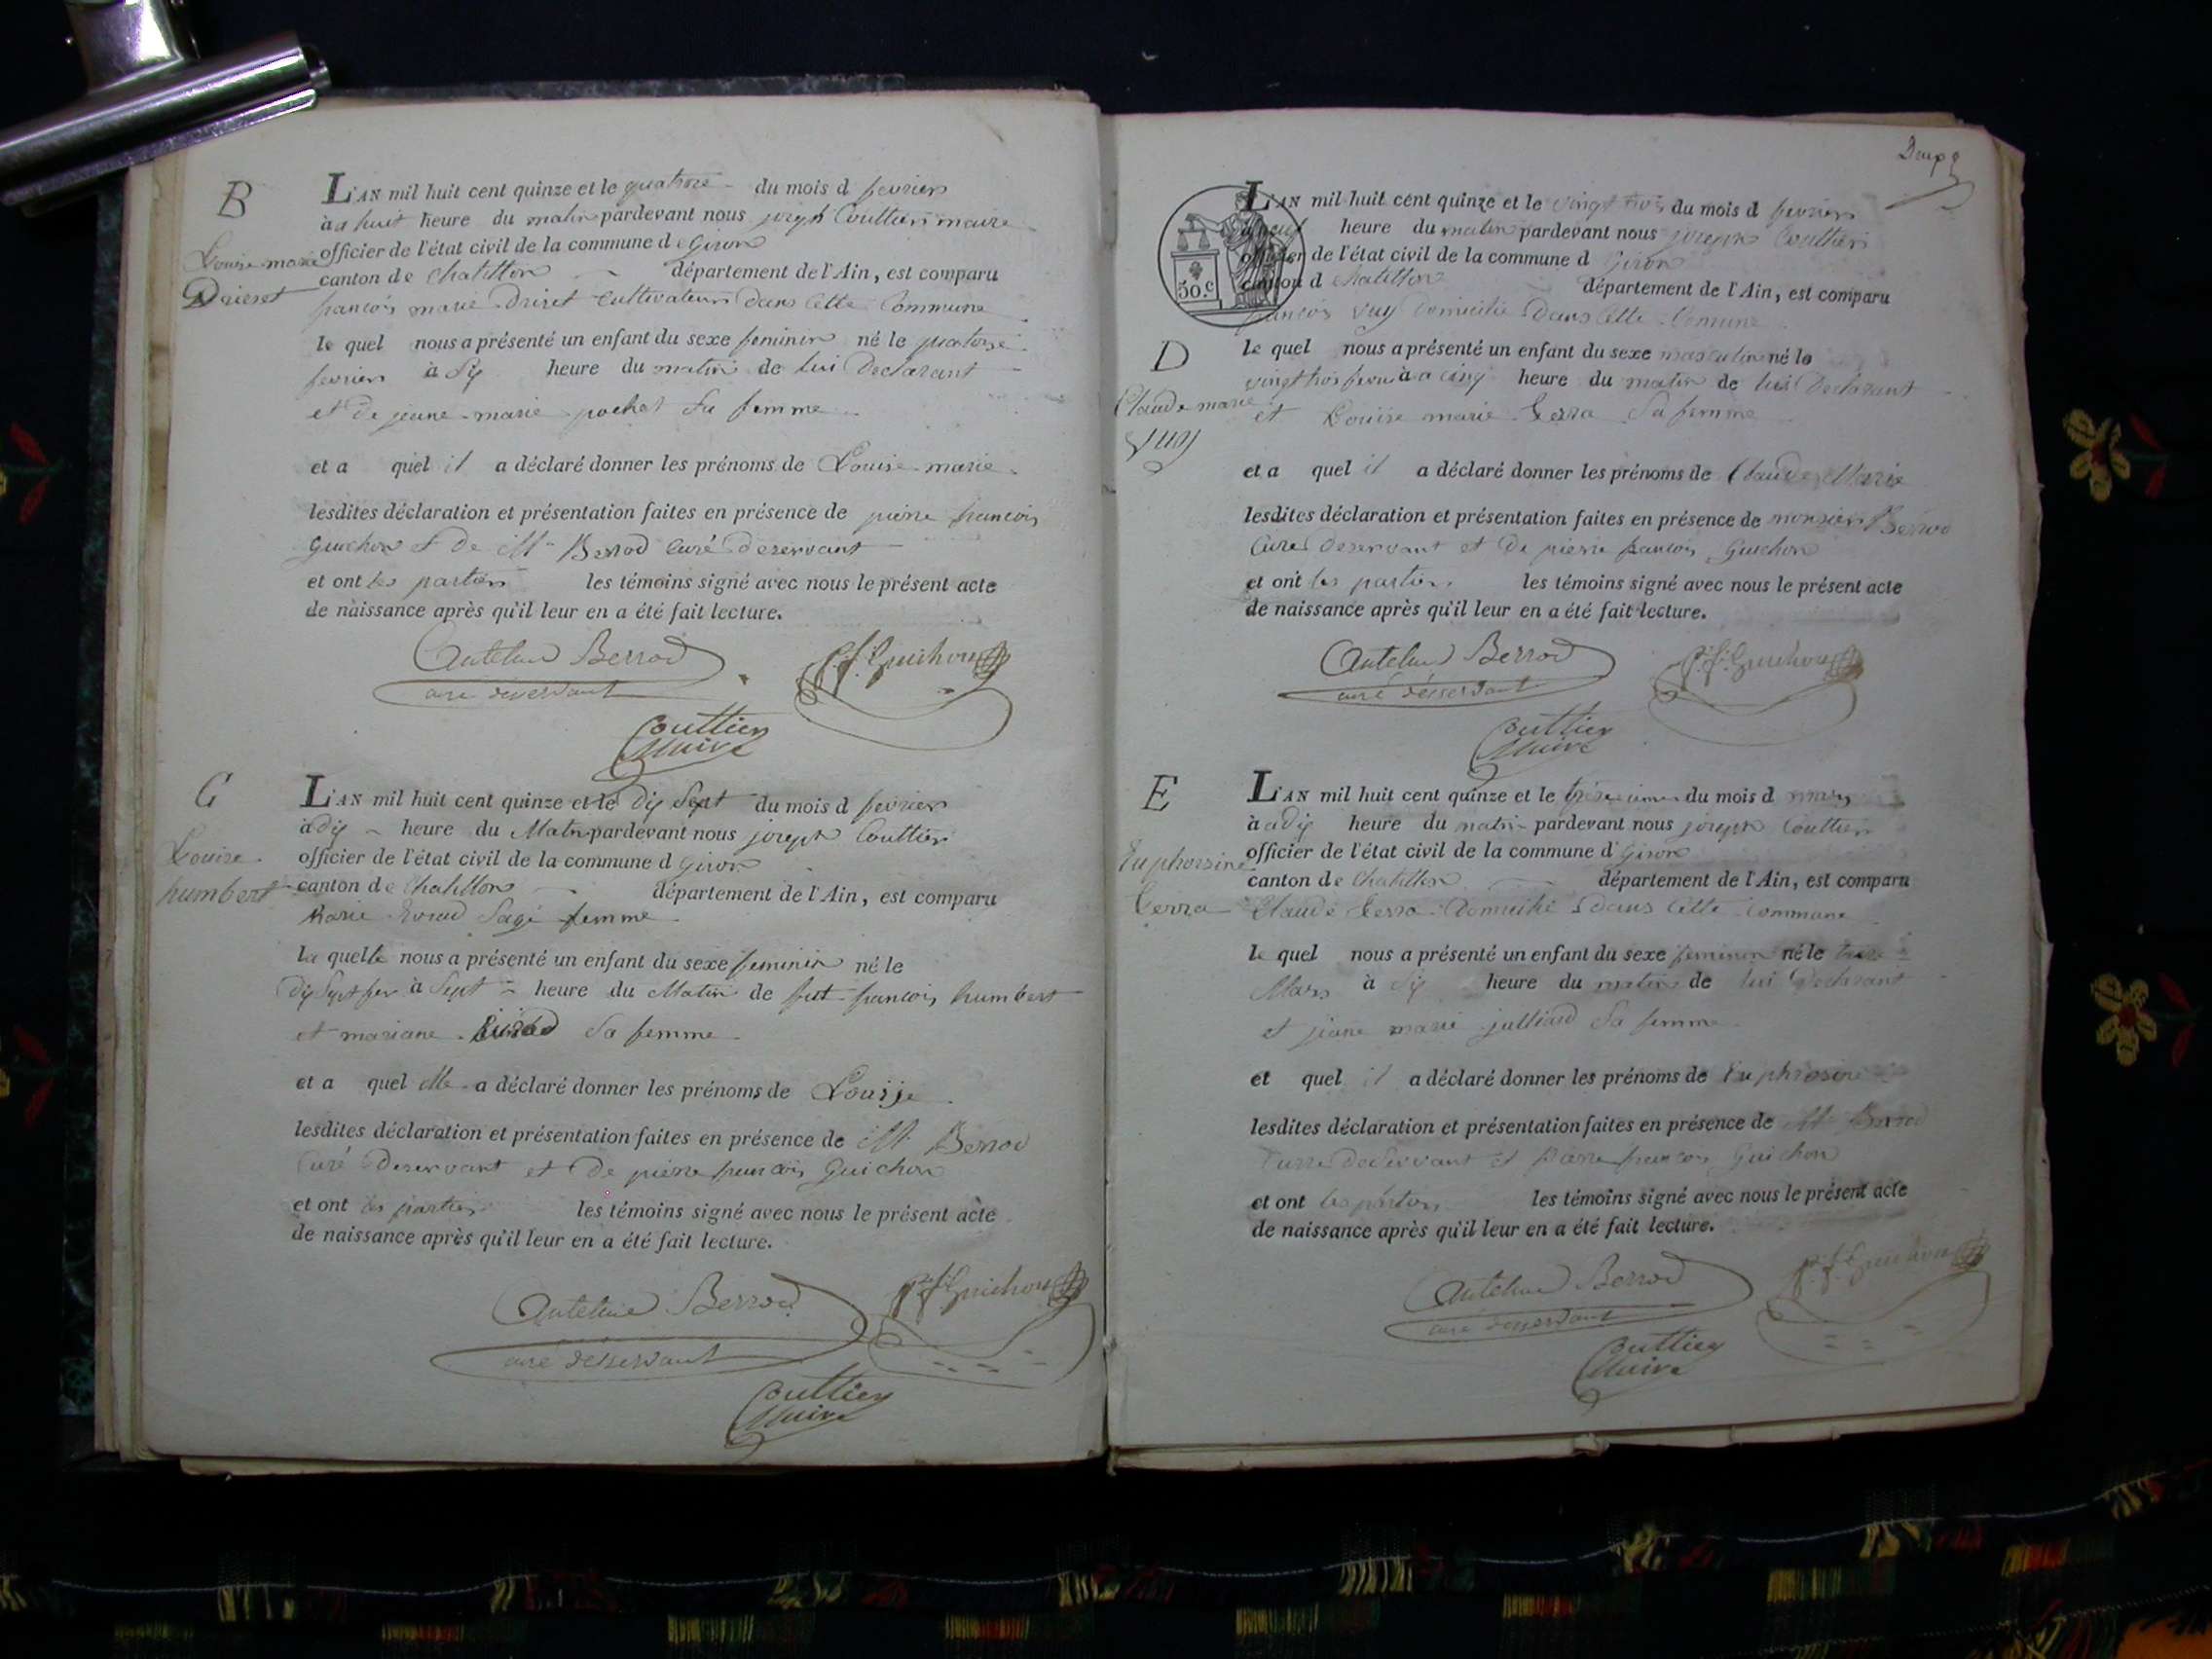 B
L'AN mil huit cent quinze et le quatorze du mois d fevrier
à a huit heure du matin pardevant nous joseph Couttier maire
officier de l'état civil de la commune d e Giron
Louise marie
canton de Chatillon département de l'Ain, est comparu
Drieret
francois marie Driret Cultivateur Dans Cette Commune
le quel nous a présenté un enfant du sexe feminin né le quatorze
fevrier à Six heure du matin de lui Declarant
et De jeane marie pochet Sa femme
et a quel il a déclaré donner les prénoms de Louise marie
lesdites déclaration et présentation faites en présence de pierre francois
Guichon et de Mr Berrod Curé deservant
et ont les parties les témoins signé avec nous le présent acte
de naissance après qu'il leur en a été fait lecture.
Antelme Berrod
curé desservant
p.f. Guichon
Couttier
Maire
C
L'AN mil huit cent quinze et le dix Sept du mois d fevrier
à dix heure du Matin pardevant nous joseph Couttier
Louise
officier de l'état civil de la commune d Giron
humbert
canton de Chatillon département de l'Ain, est comparu
Marie Sage femme
la quelle nous a présenté un enfant du sexe feminin né le
dix Sept fev à Sept heure du Matin de fut francois humbert
et mariane Sa femme
et a quel elle a déclaré donner les prénoms de Louise
lesdites déclaration et présentation faites en présence de Mr Berrod
Curé Deservant et De pierre francois Guichon
et ont les parties les témoins signé avec nous le présent acte
de naissance après qu'il leur en a été fait lecture.
Antelme Berrod
curé desservant
p.f. Guichon
Couttier
Maire
50.c
L'AN mil huit cent quinze et le vingt trois du mois d fevrier
heure du matin pardevant nous joseph Couttier
officier de l'état civil de la commune d Giron
canton d Chatillon département de l'Ain, est comparu
francois Vuy Domicilié Dans Cette Comune
D
le quel nous a présenté un enfant du sexe masculin né le
vingt trois fevrié à a cinq heure du matin de lui Declarant
Claude marie
Vuy
et Louise marie Gerra Sa femme
et a quel il a déclaré donner les prénoms de Claude Marie
lesdites déclaration et présentation faites en présence de monsier Berrod
Curé Deservant et De pierre francois Guichon
et ont les parties les témoins signé avec nous le présent acte
de naissance après qu'il leur en a été fait lecture.
Antelme Berrod
curé desservant
p.f. Guichon
Couttier
Maire
E
L'AN mil huit cent quinze et le du mois d mars
à a dix heure du matin pardevant nous joseph Couttier
officier de l'état civil de la commune d Giron
Euphorsine
canton de Chatillon département de l'Ain, est comparu
Gerra
Claude Gerra Domicilié Dans Cette Commune
le quel nous a présenté un enfant du sexe feminin né le treize
Mars à Six heure du matin de lui Declarant
et jeane marie julliard Sa femme
et quel il a déclaré donner les prénoms de Euphrosine
lesdites déclaration et présentation faites en présence de Mr Berrod
Curre deservant et francois Guichon
et ont les parties les témoins signé avec nous le présent acte
de naissance après qu'il leur en a été fait lecture.
Antelme Berrod
curé desservant
p.f. Guichon
Couttier
Maire